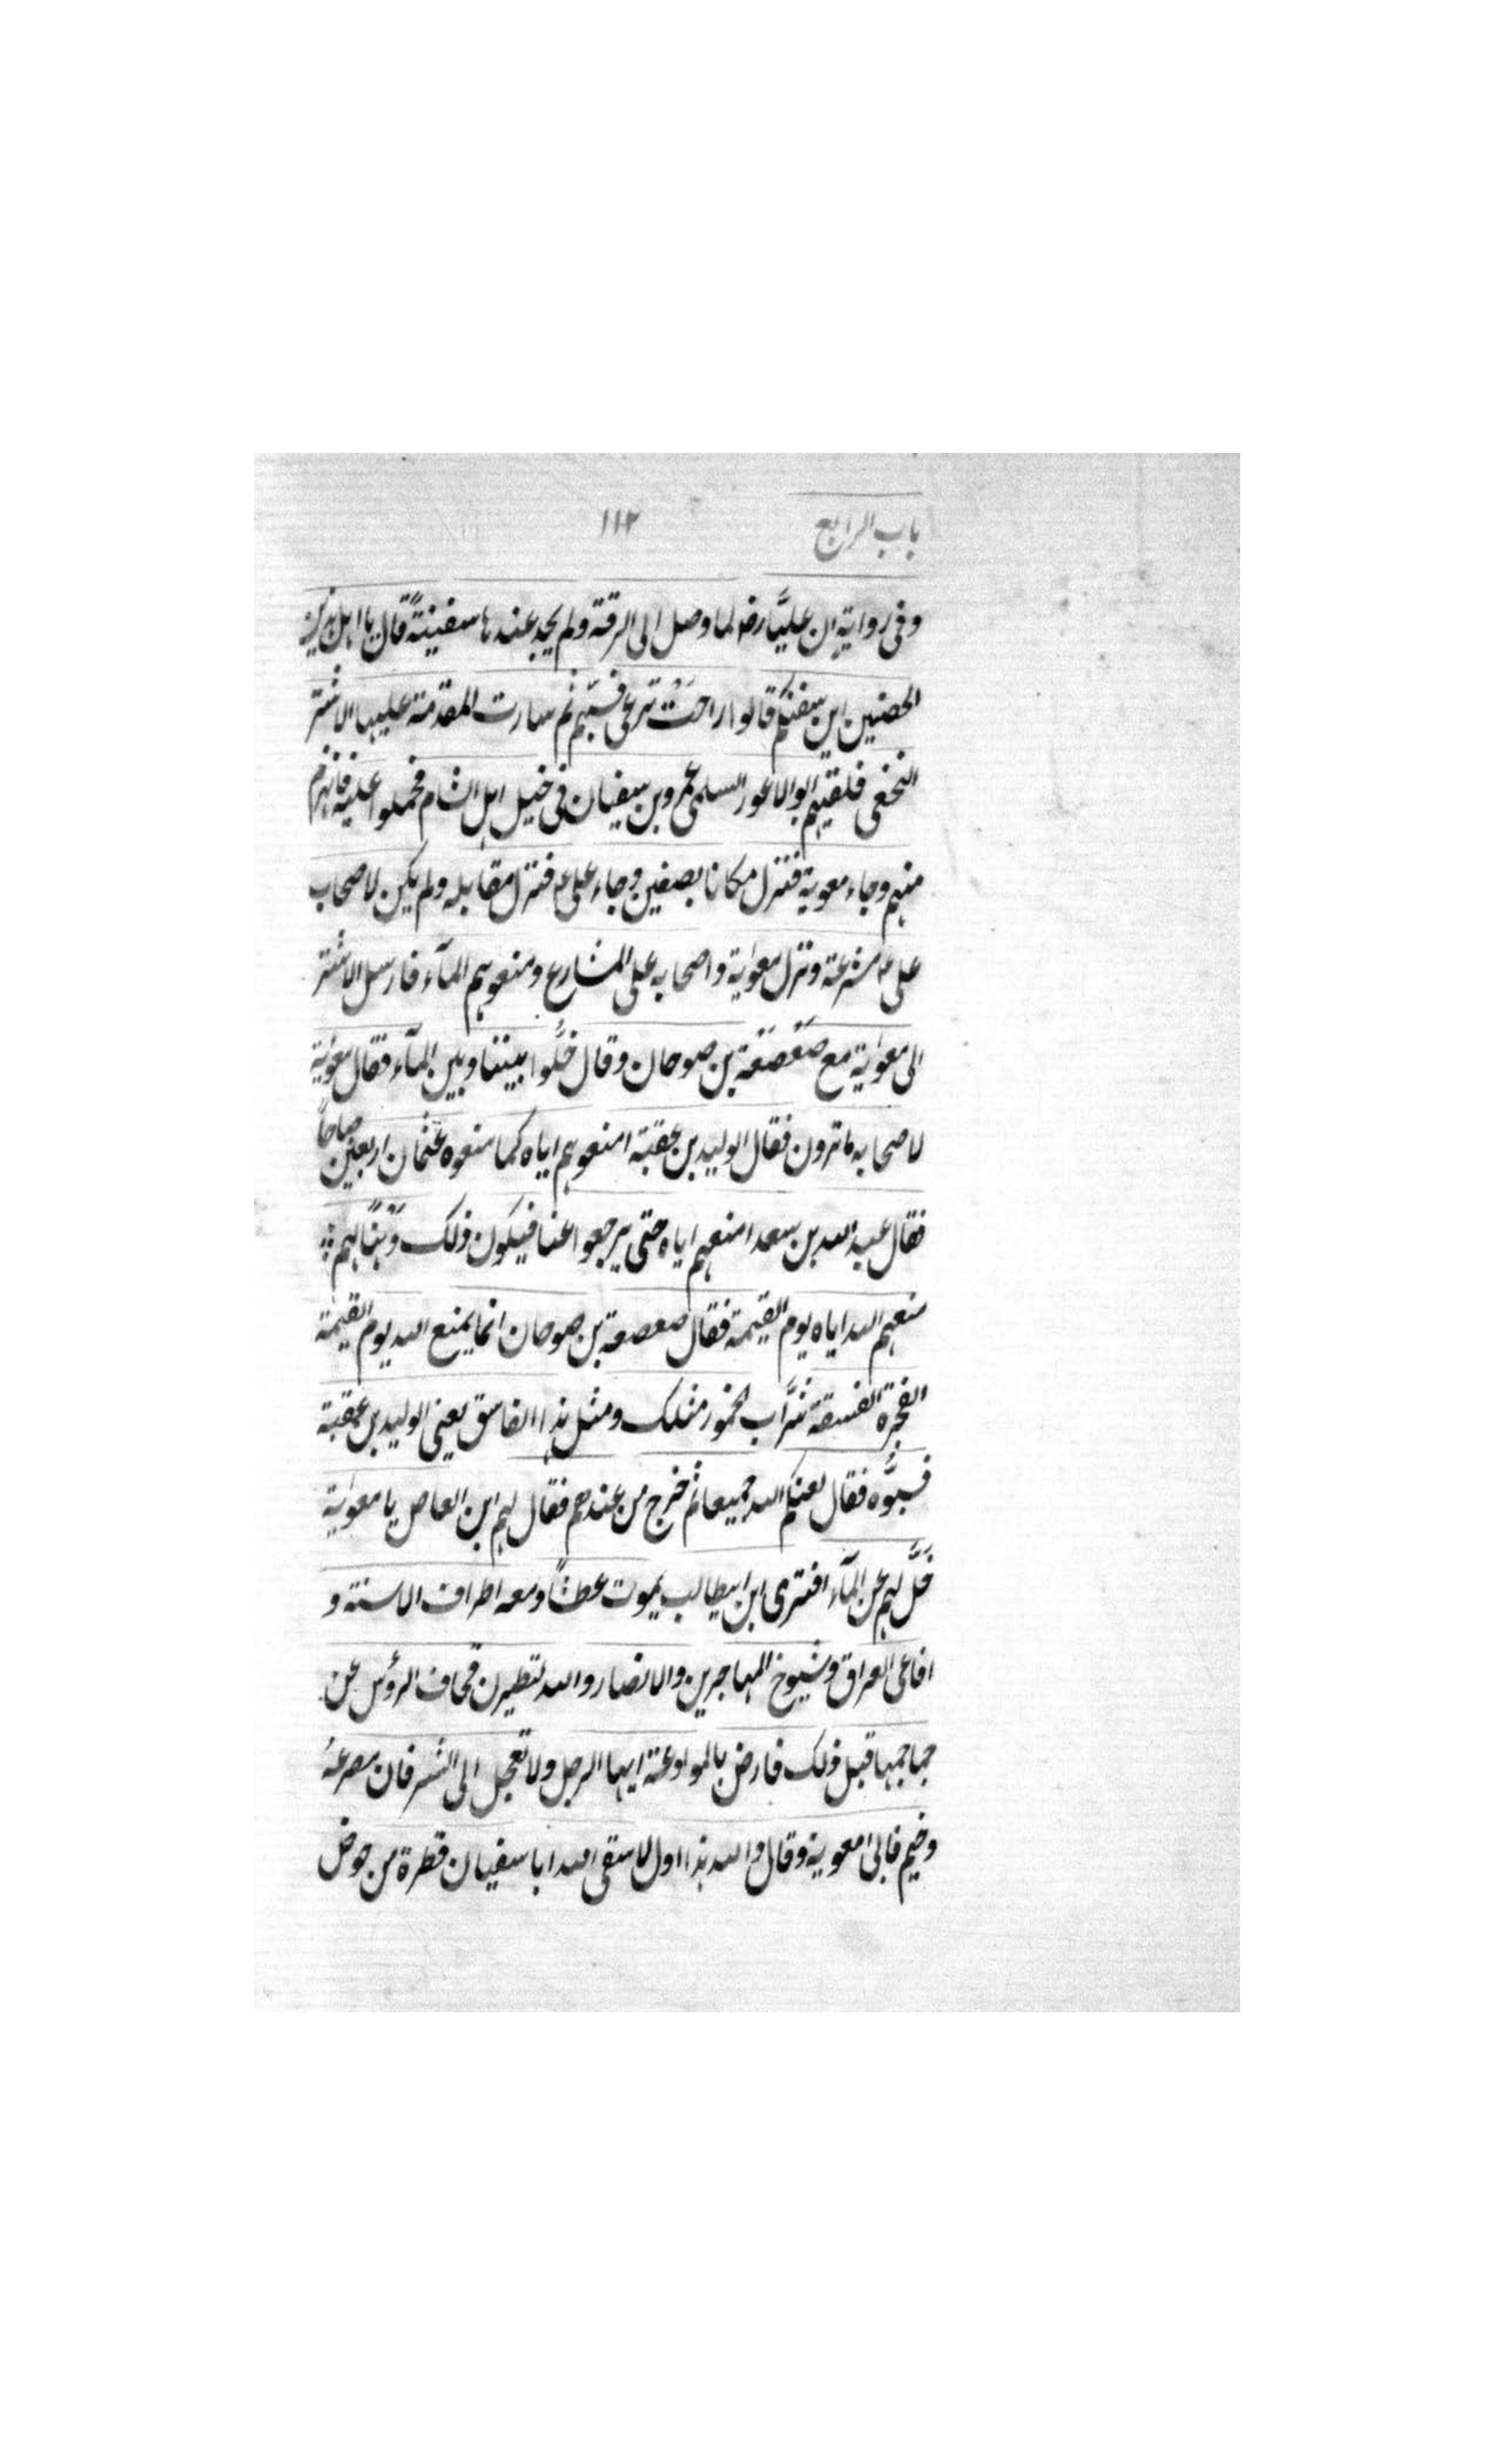 باب الرابع ١١٢
وفى رواية ان عليّا رضـ لما وصل الى الرقة ولم يجد عندها سفينةً قال يا اهل هذين
الحصنين اين سفنكم قالوا راحَتْ ترعى فسبّهم ثم سارت المقدمة عليها الاشتر
النخعى فلقيهم ابو الاعور السلمى عمرو بن سفيان فى خيل اهل الشام فحملوا عليه فانهزم
منهم وجاء معوية فنزل مكانا بصفين وجاء على عـ فنزل مقابله ولم يكن لاصحاب
على عـ مشرعة ونزل معوٰية واصحابه على المشارع ومنعوهم المآء فارسل الاشتر
الى معوٰية مع صَعْصَعَة بن صوحان وقال خَلُّوا بيننا وبين المآء فقال معوٰية
لاصحابه ما ترون فقال الوليد بن عقبة امنعوهم اياه كما منعوه عثمان اربعين صباحاً
فقال عبد الله بن سعد امنعهم اياه حتى يرجعوا عنا فيكون ذلك وَهْنًا لهم
منعهم الله اياه يوم القيٰمة فقال صعصعة بن صوحان انما يمنع الله يوم القيٰمة
الفجرة الفسقة شرَّاب الخمور مثلك ومثل هذا الفاسق يعنى الوليد بن عقبة
فسبُّوه فقال لعنكم الله جميعا ثم خرج من عندهم فقال لهم ابن العاص يا معوٰية
خَلِّ لهم عن المآء افترى ابن ابيطالب يموت عطشاً ومعه اطراف الاسنة و
افاعى العراق وشيوخ المهاجرين والانصار والله لتطيرن قحاف الرؤس عن
جماجمها قبل ذلك فارض بالموادعة ايها الرجل ولا تعجل الى الشر فان مصرعهُ
وخيم فابى معوية وقال والله هذا اول لا سقى الله ابا سفيان قطرة من حوض